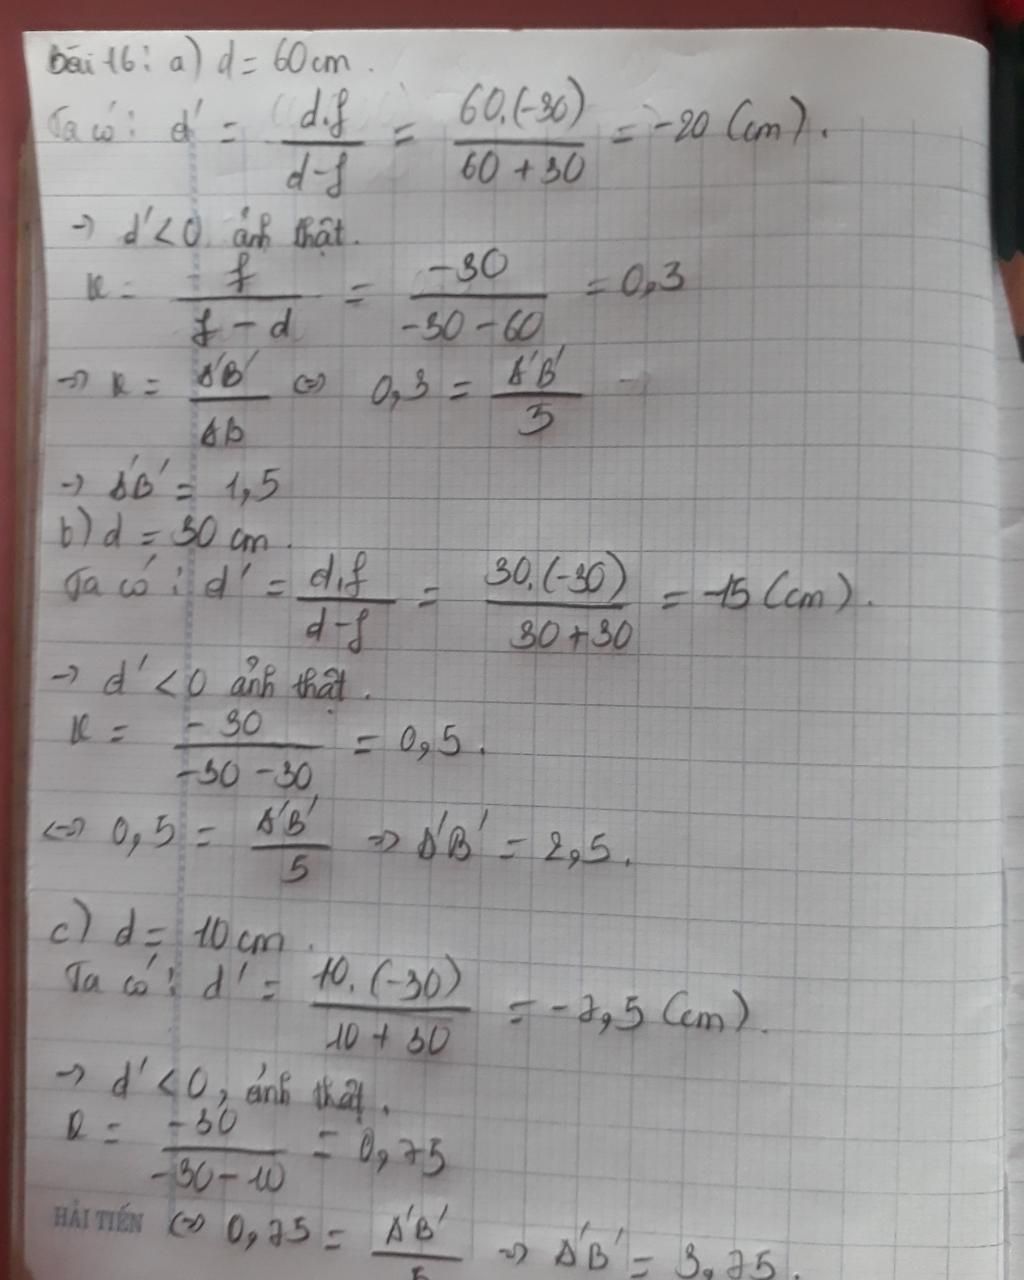 Bài 16: a) d = 60cm.
Ta có: d' = d.f / d-f = 60.(-30) / 60 + 30 = -20 (cm).
→ d' < 0 ảnh thật.
k = f / f - d = -30 / -30 - 60 = 0,3
→ k = A'B' / AB <=> 0,3 = A'B' / 5
→ A'B' = 1,5
b) d = 30 cm.
Ta có: d' = d.f / d-f = 30.(-30) / 30 + 30 = -15 (cm).
→ d' < 0 ảnh thật.
k = -30 / -30 - 30 = 0,5.
<=> 0,5 = A'B' / 5 => A'B' = 2,5.
c) d = 10 cm.
Ta có: d' = 10.(-30) / 10 + 30 = -7,5 (cm).
→ d' < 0, ảnh thật.
k = -30 / -30 - 10 = 0,75
HẢI TIẾN <=> 0,75 = A'B' / 5 => A'B' = 3,75.